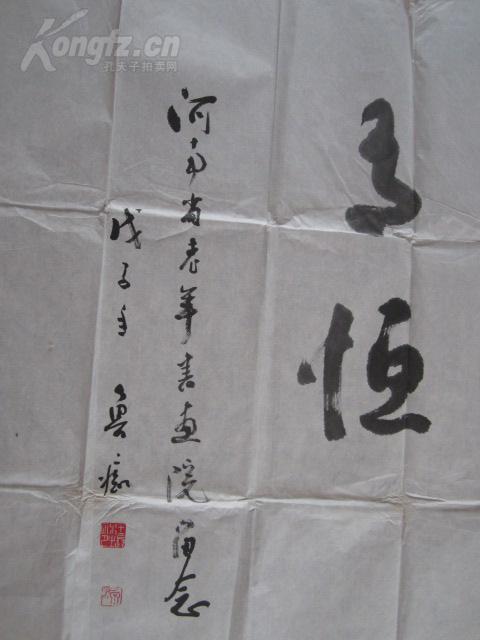 Kongfz.cn
孔夫子拍卖网
有恒
河南省老年书画院留念
戊子年